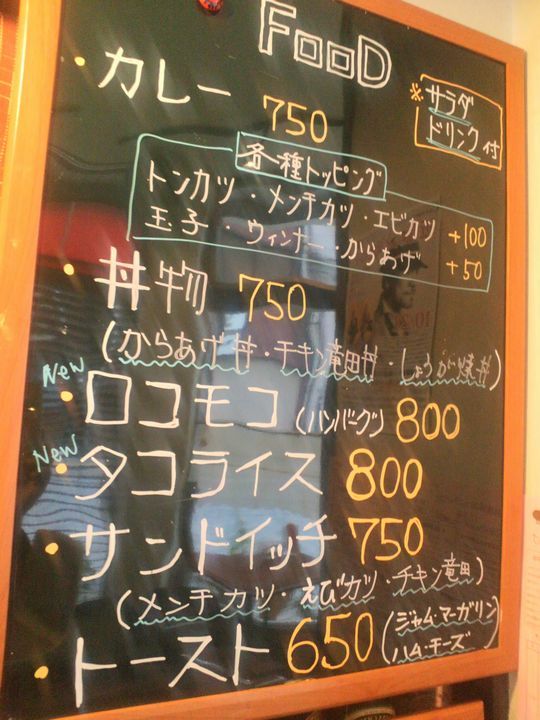 FooD
・カレー 750
※サラダ
ドリンク付
各種トッピング
トンカツ・メンチカツ・エビカツ +100
玉子・ウィンナー・からあげ +50
・丼物 750
(からあげ丼・チキン竜田丼・しょうが焼丼)
New
・ロコモコ(ハンバーグ) 800
New
・タコライス 800
・サンドイッチ 750
(メンチカツ・えびカツ・チキン竜田)
・トースト 650(ジャム・マーガリン
ハム・チーズ)